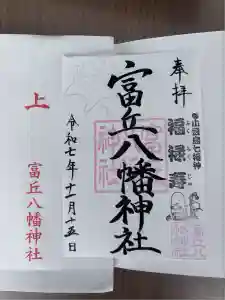 奉拝
小豆島七福神
福禄寿
富丘八幡神社
令和七年十一月十五日
上
富丘八幡神社